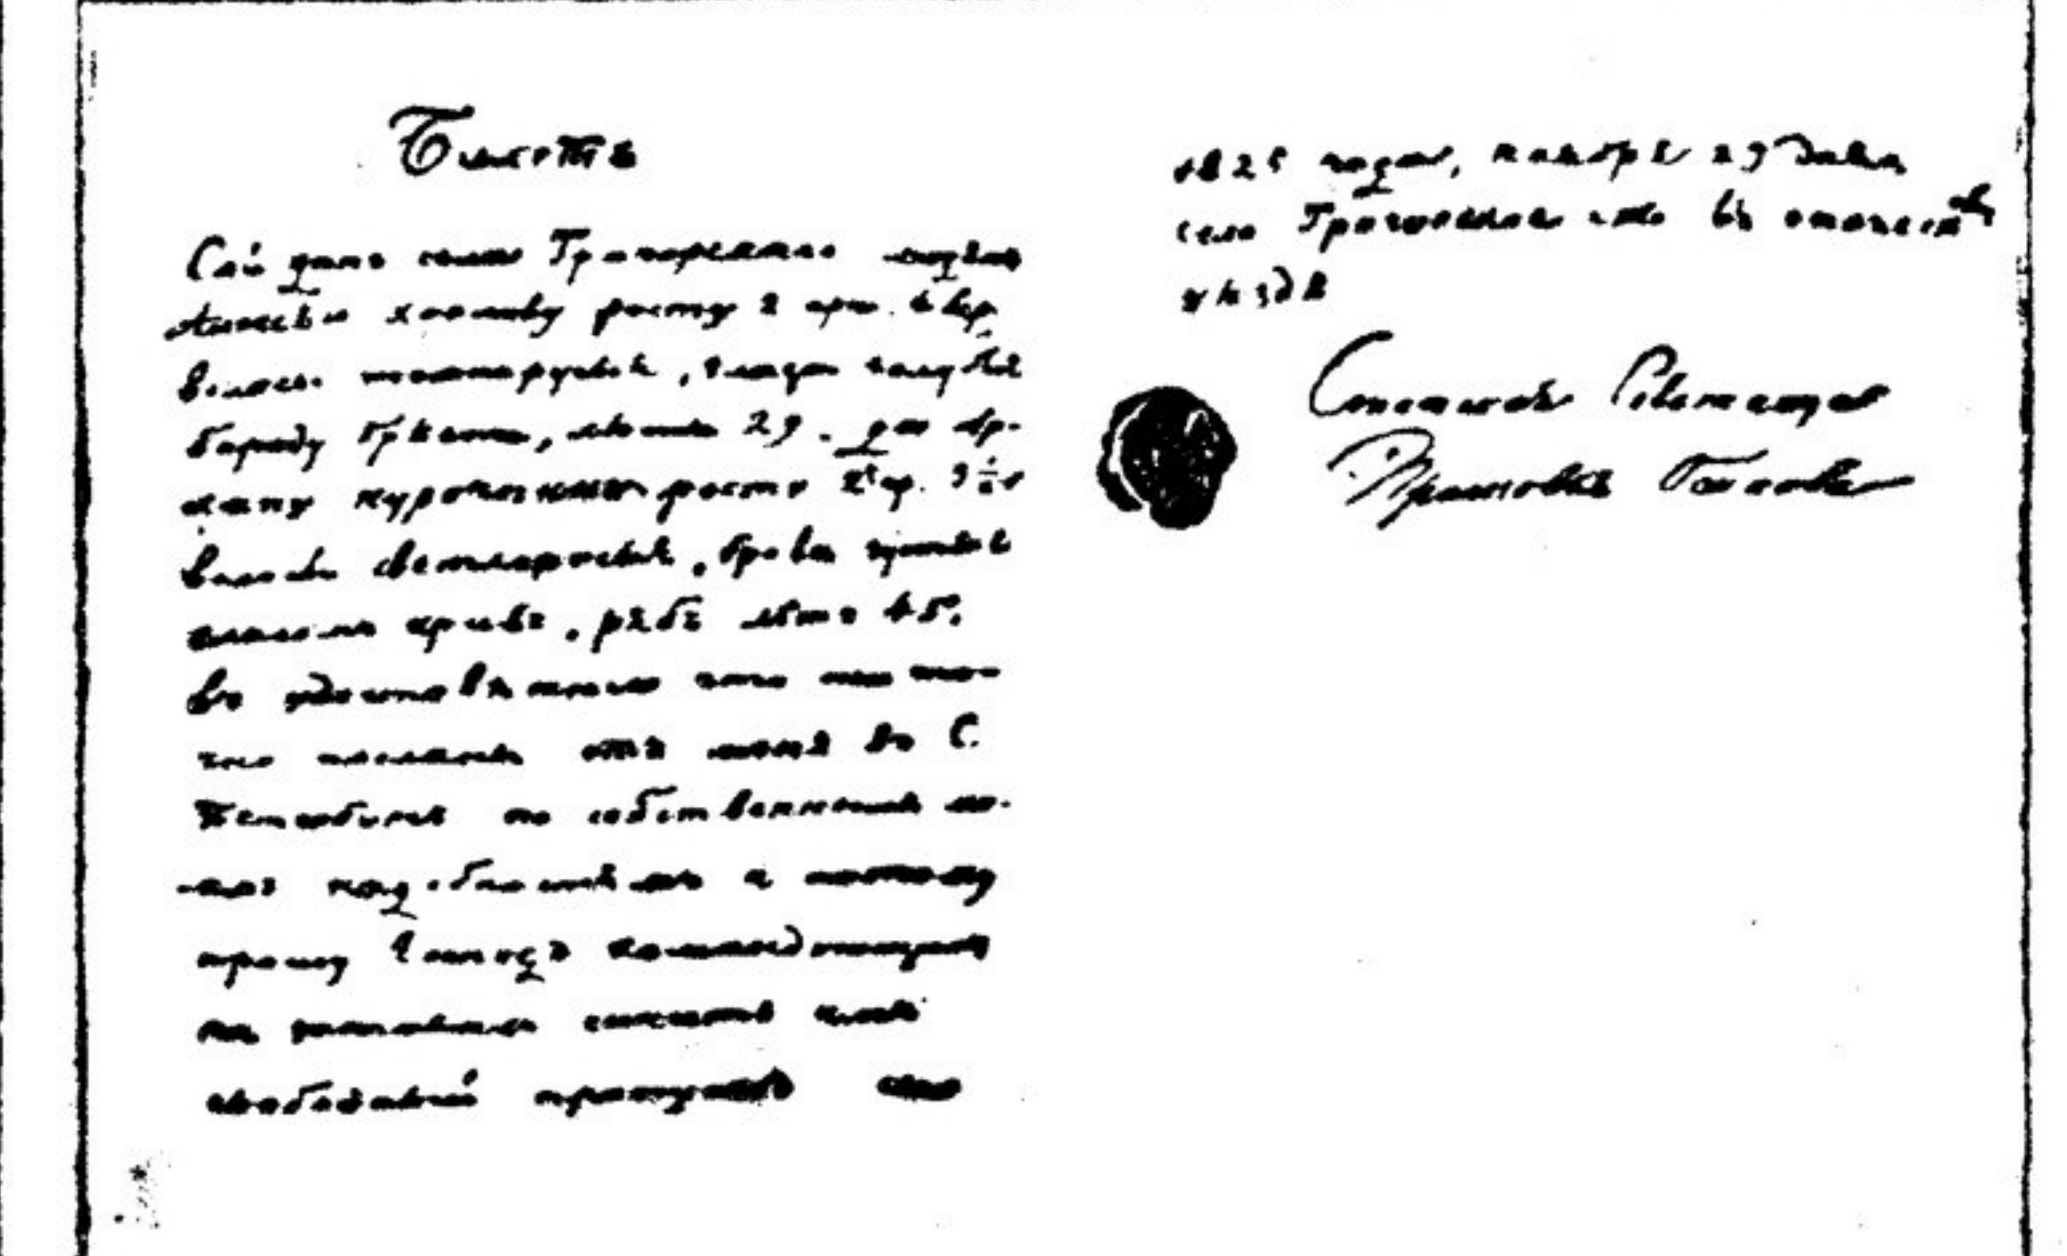 Билетъ
Сей данъ села Тригорскаго людямъ
Алексѣю Хохлову росту 2 арш. 4 вер.
волосы темнорусыя, глаза голубыя
бороду брѣетъ, лѣтъ 29. да Ар-
хипу Курочкину росту 2 ар. 3 ½ в
волосы светлорусыя, брови густыя
глазомъ кривъ, рябъ лѣтъ 45.
въ удостовѣренiе что они точ-
но посланы отъ меня въ С.
Петербургъ по собственнымъ мо-
имъ надобностямъ и потому
прошу Господъ командующихъ
на заставахъ чинить имъ
свободный пропускъ сего
1825 года, ноября 29 дня,
село Тригорское что въ опочецкомъ
уѣздѣ
Статская Советница
Прасковья Осипова